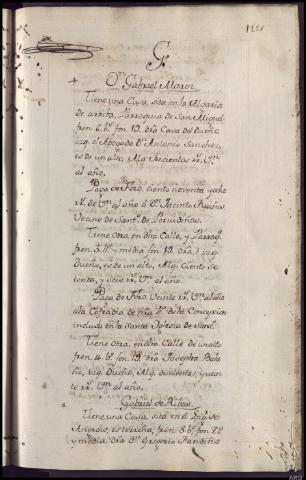 G
+
Dn. Gabriel Marin.
Tiene una Casa, sita en la Algaria
de arriba, Parroquia de San Miguel
fren. 6. bs. fon. 19. dra. Casa del Dueño
izq. el Abogado Dn. Antonio Sanchez,
es de un alto, Alq. trecientos rs. vn.
al año.
Paga de Foro, ciento noventa y ocho
rs. de vn. al año à Dn. Jacinto
Vecino de Santo. de
Tiene otra, en dha Calle, y Parroqa.
fren. 3. bs. y media fon. 19. dra. e izq.
Dueño, es de un alto, Alq. Ciento se-
tenta, y seis rs. vn. al año.
Paga de Foro Veinte rs. vn. al año
ala Cofradia de nra. Sa. de la Concepcion
inclusa en la Santa Iglesia de Santo.
Tiene otra, en dho Calle de un alto
fren. 4. bs. fon. 19. dra. Josepha
izq. Dueño, Alq. ducientos, y vein-
te rs. vn. al año.
Gabriel de Ribas.
Tiene una Casa, sita en el
Angeles, es terrena, fren. 5. bs. fon. 7. bs.
y media, dra. Dn. Gregorio Sandiño